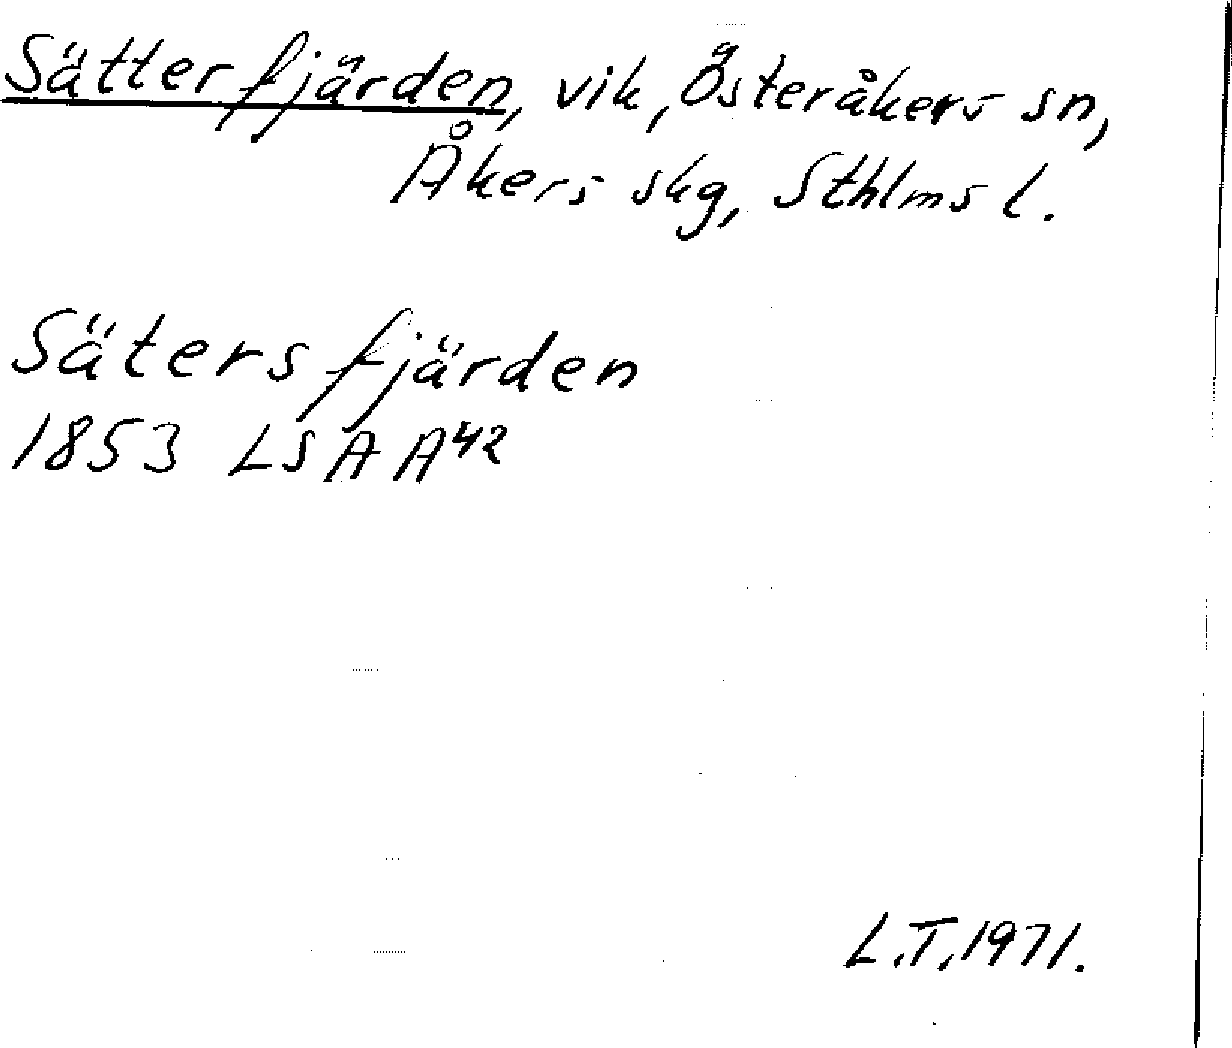 Sätterfjärden, vik, Österåkers sn,
Åkers skg, Sthlms l.
Sätersfjärden
1853 LSA A42
L.T. 1971.